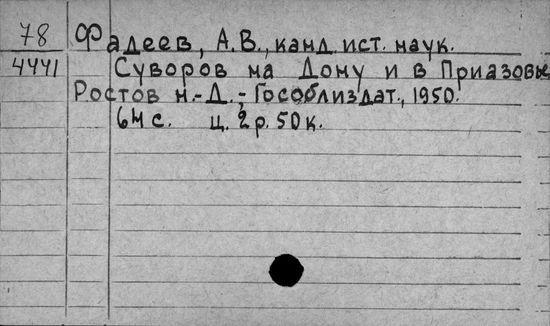 78 Фадеев, А.В., канд. ист. наук.
4441 Суворов на Дону и в Приазовье
Ростов н.-Д., Гособлиздат., 1950.
64 с. ц. 2 р. 50 к.